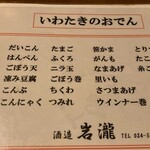 いわたきのおでん
だいこん たまご 笹かま とりつ
はんぺん ふくろ がんも たこ
ごぼう天 ニラ玉 なまあげ
凍み豆腐 ごぼう巻 里いも
こんぶ ちくわ さつまあげ
こんにゃく つみれ ウインナー巻
酒逢 岩瀧 TEL 024-5